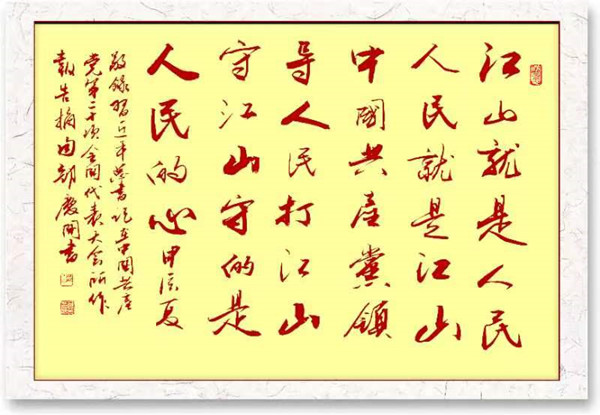 江山就是人民
人民就是江山
中國共產黨領
导人民打江山
守江山守的是
人民的心 甲辰夏
敬錄習近平总書记在中国共產
党第二十次全国代表大会所作
報告摘句 慶書